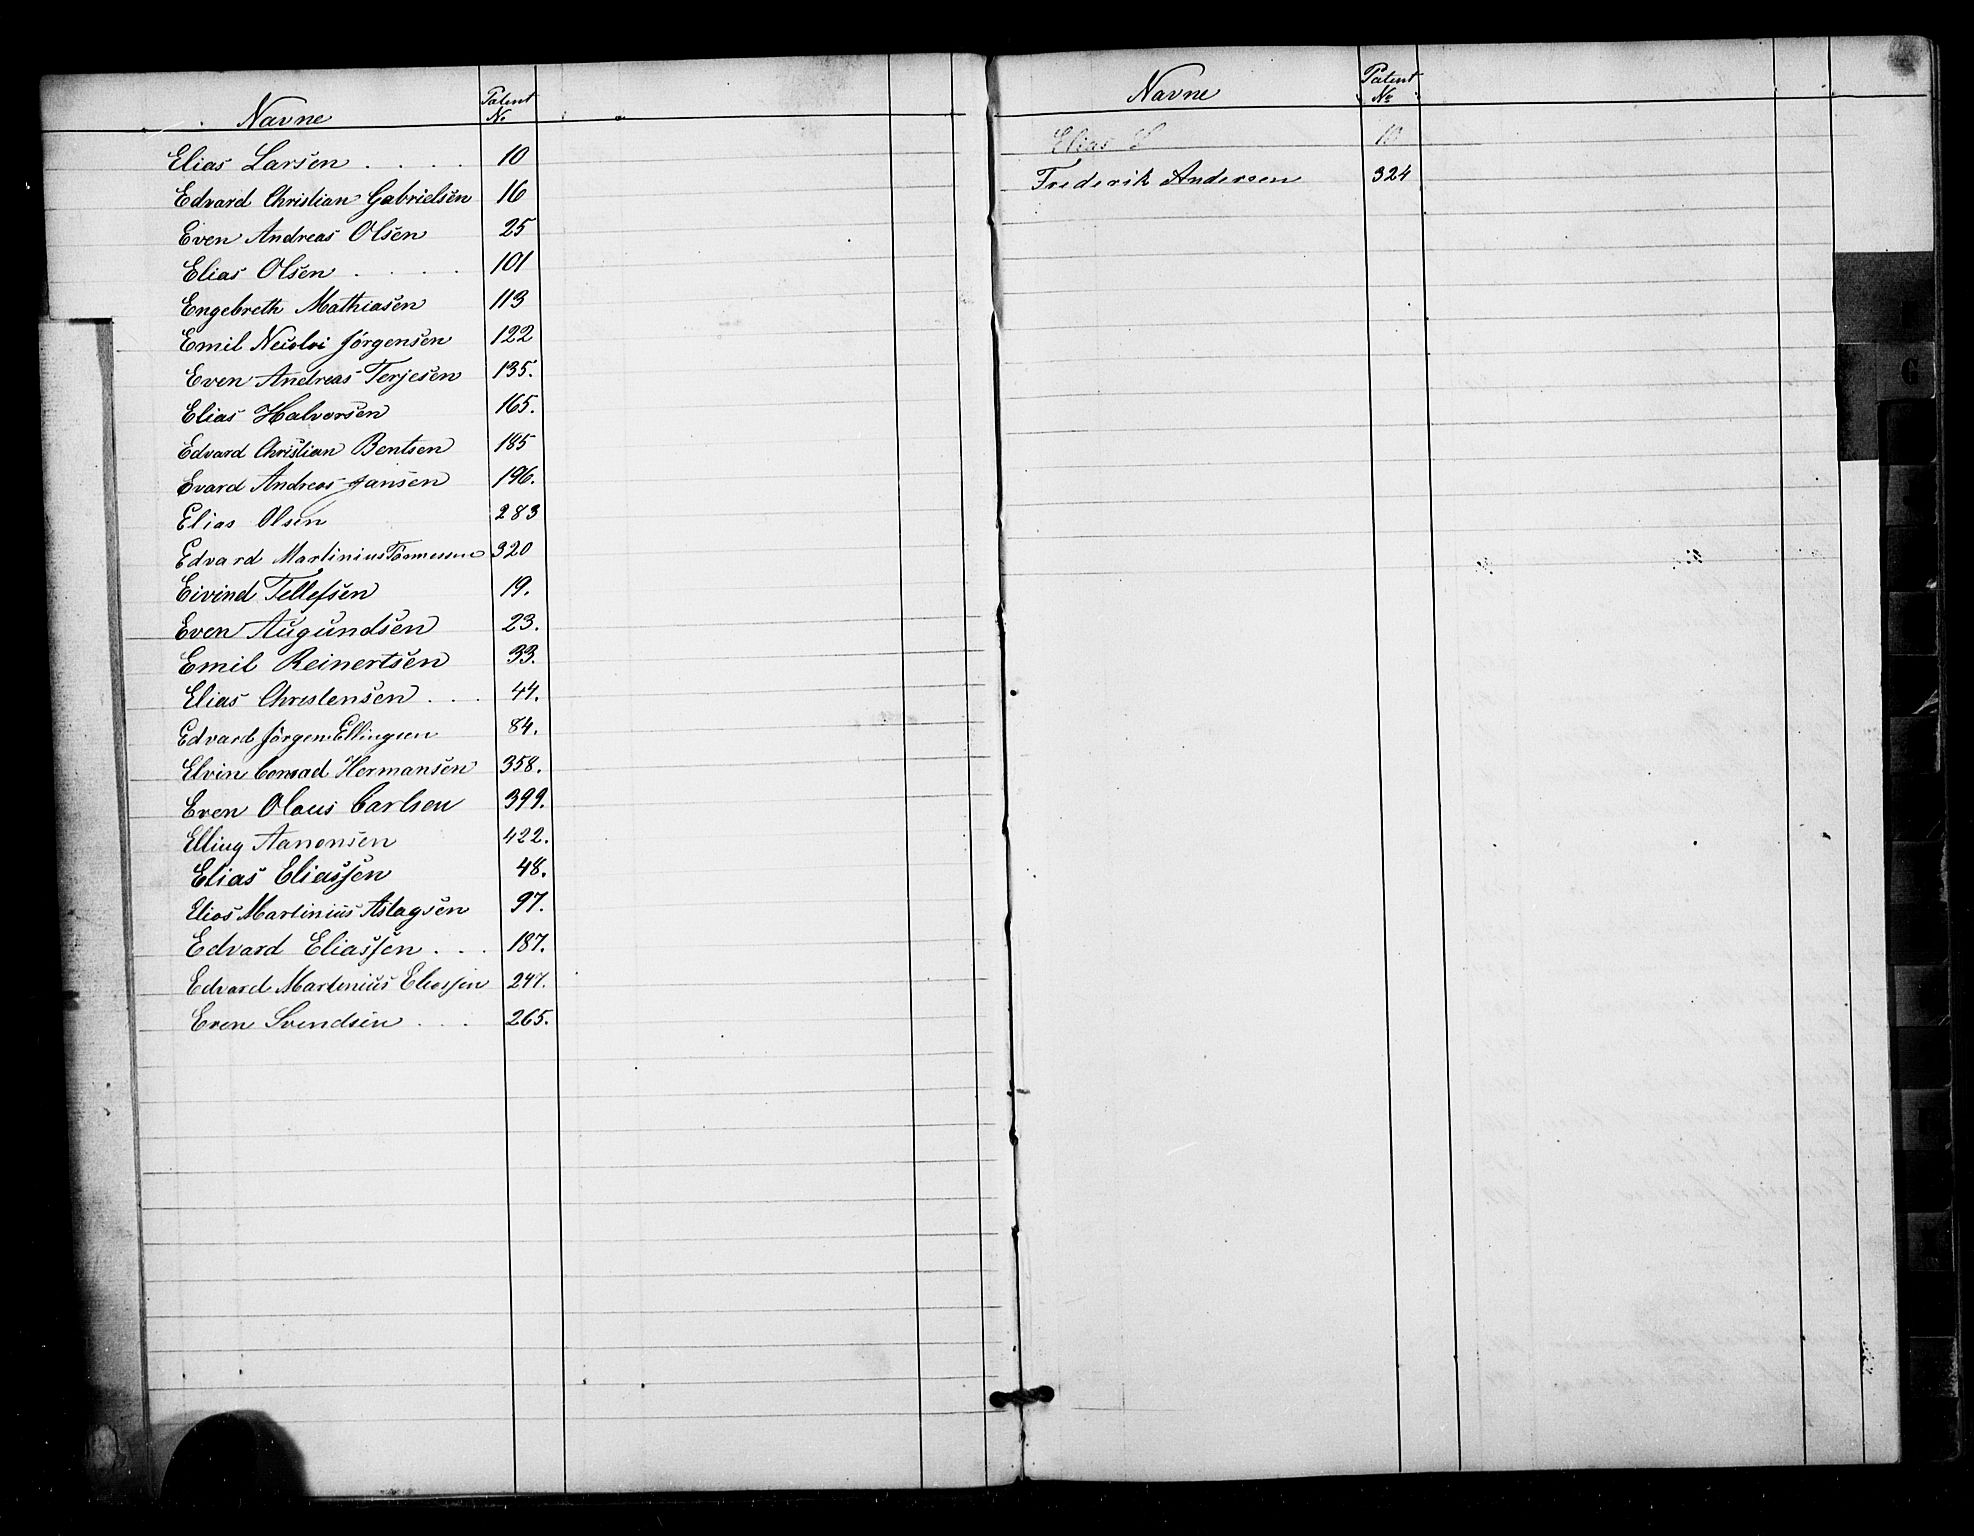 Navne Patent No
Elias Larsen . . . . 10
Edvard Christian Gabrielsen 16
Even Andreas Olsen 25
Elias Olsen . . . . 101
Engebreth Mathiasen 113
Emil Nicolai Jörgensen 122
Even Andreas Terjesen 135.
Elias Halvorsen 165.
Edvard Christian Bentsen 185
Evard Andreas Jansen 196.
Elias Olsen 283
Edvard Martinius Tönnessen 320
Eivind Tellefsen 19.
Even Augundsen 23.
Emil Reinertsen 33.
Elias Christensen . . . 44.
Edvard Jörgen Ellingsen 84.
Elvin Conrad Hermansen 358.
Even Olaus Carlsen 399.
Elling Aanonsen 422.
Elias Eliassen 48.
Elias Martinius Aslagsen 97.
Edvard Eliassen . . . 187.
Edvard Martinius Eliassen 247.
Even Svendsen . . . 265.
Navne Patent No
Elias L 10
Frederik Andersen 324
G